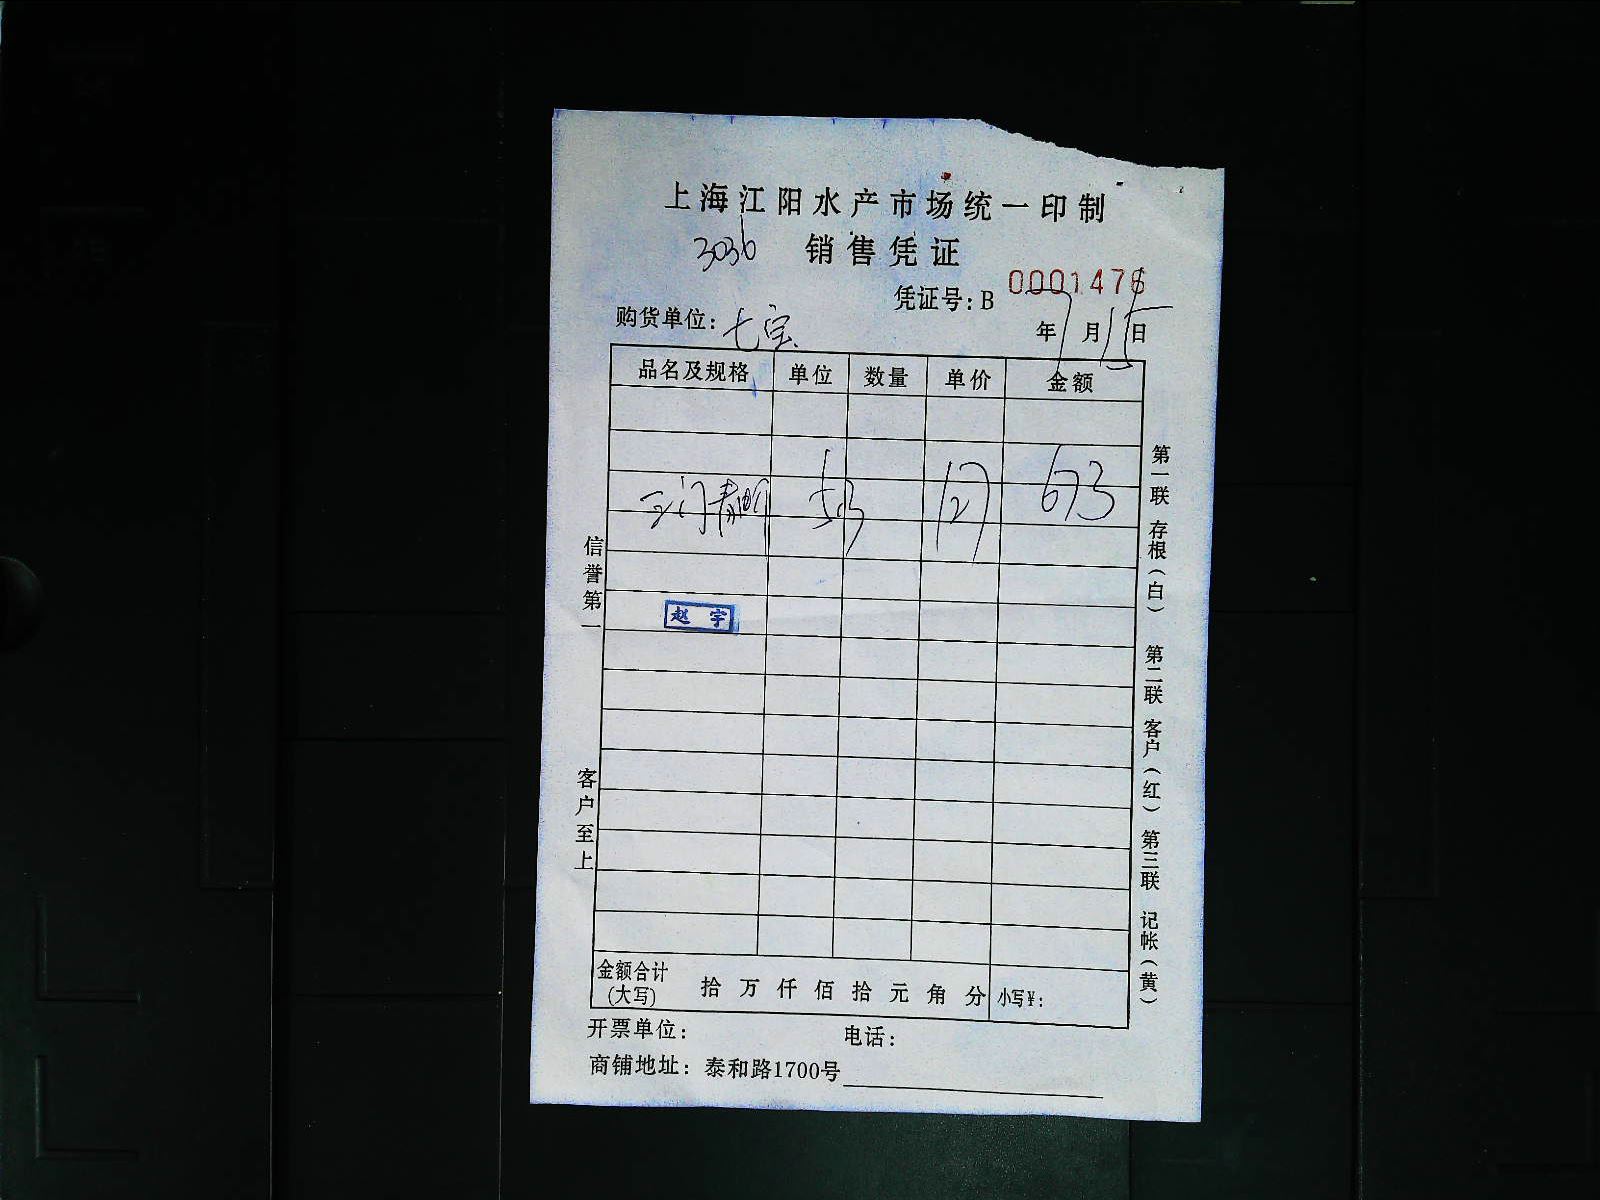 上海江阳水产市场统一印制
3036 销售凭证
凭证号：B 0001476
购货单位：七宝 年 7 月 15 日
品名及规格 单位 数量 单价 金额
三门青 5.3 127 673
赵宇
信誉第一
客户至上
第一联 存根（白） 第二联 客户（红） 第三联 记帐（黄）
金额合计（大写） 拾 万 仟 佰 拾 元 角 分 小写¥：
开票单位： 电话：
商铺地址：泰和路1700号